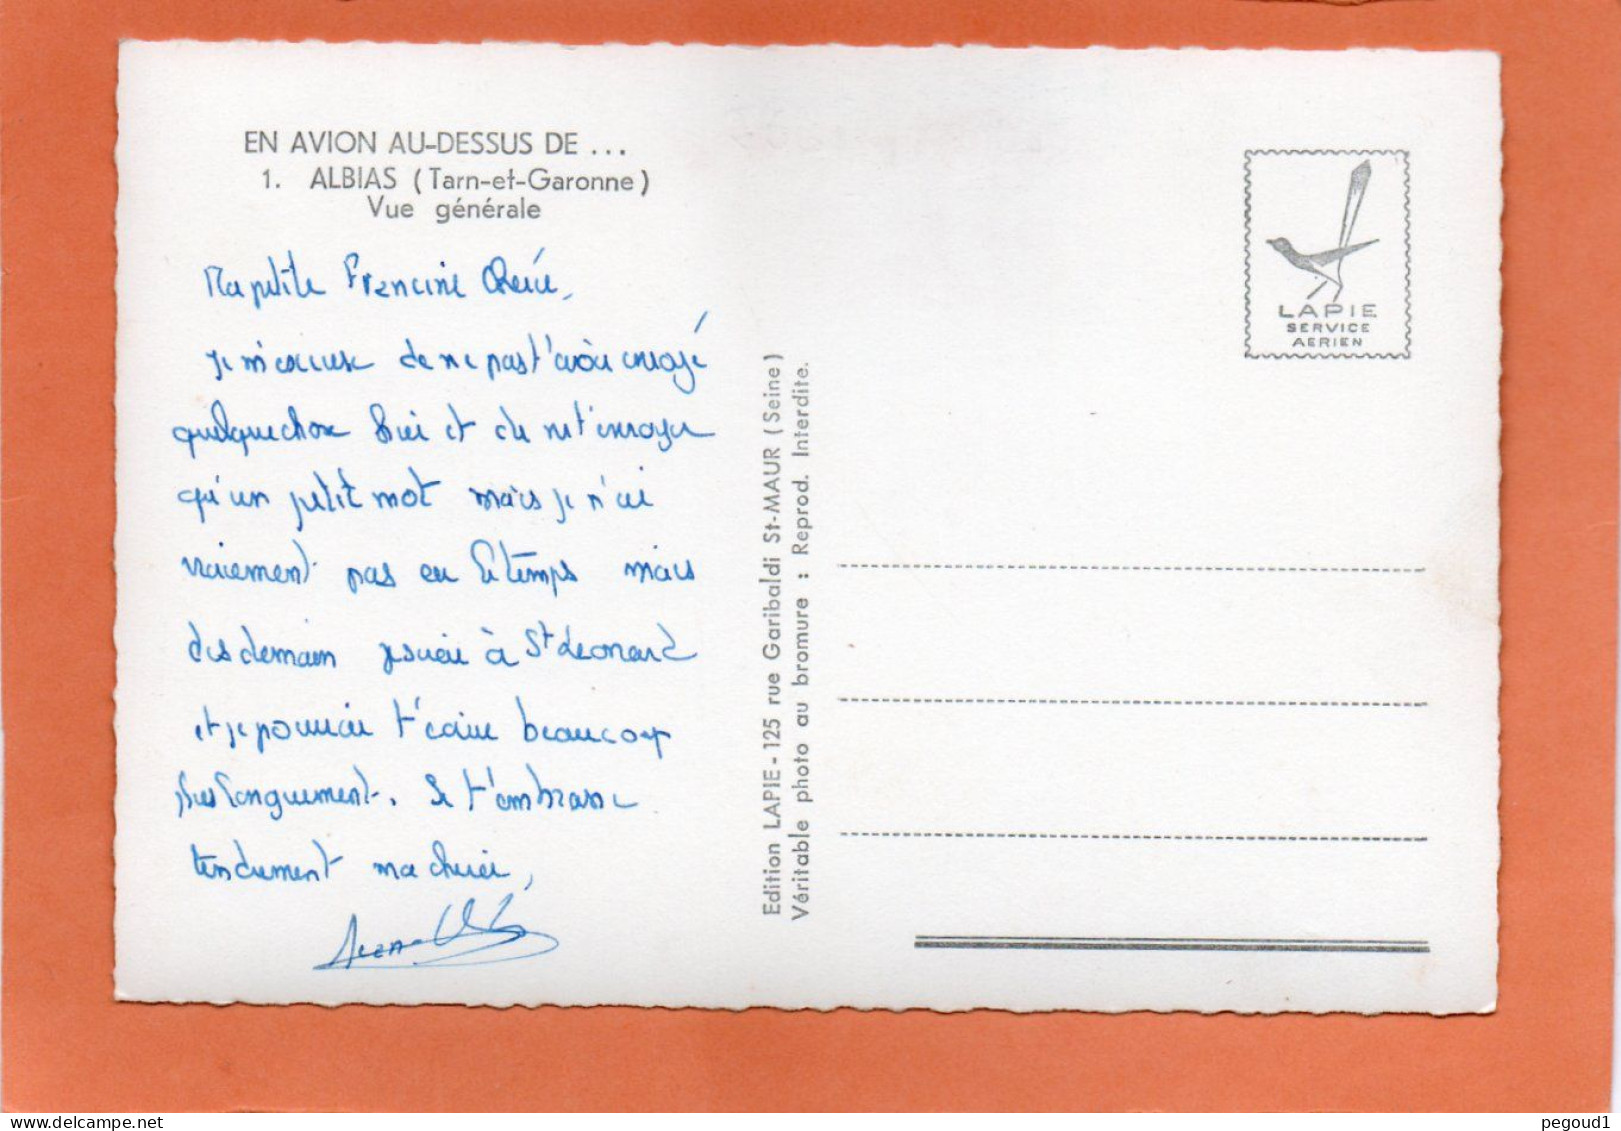 EN AVION AU-DESSUS DE ...
1. ALBIAS (Tarn-et-Garonne)
Vue générale
Ma petite Francine Chérie,
je m'excuse de ne pas t'avoir envoyé
quelque chose hier et de ne t'envoyer
qu'un petit mot mais je n'ai
vraiement pas eu le temps mais
dès demain je serai à St Léonard
et je pourrai t'écrire beaucoup
plus longuement. Je t'embrasse
tendrement ma chérie,
Jean-
Edition LAPIE - 125 rue Garibaldi St-MAUR (Seine)
Véritable photo au bromure : Reprod. Interdite.
LAPIE
SERVICE
AERIEN
pegoud1